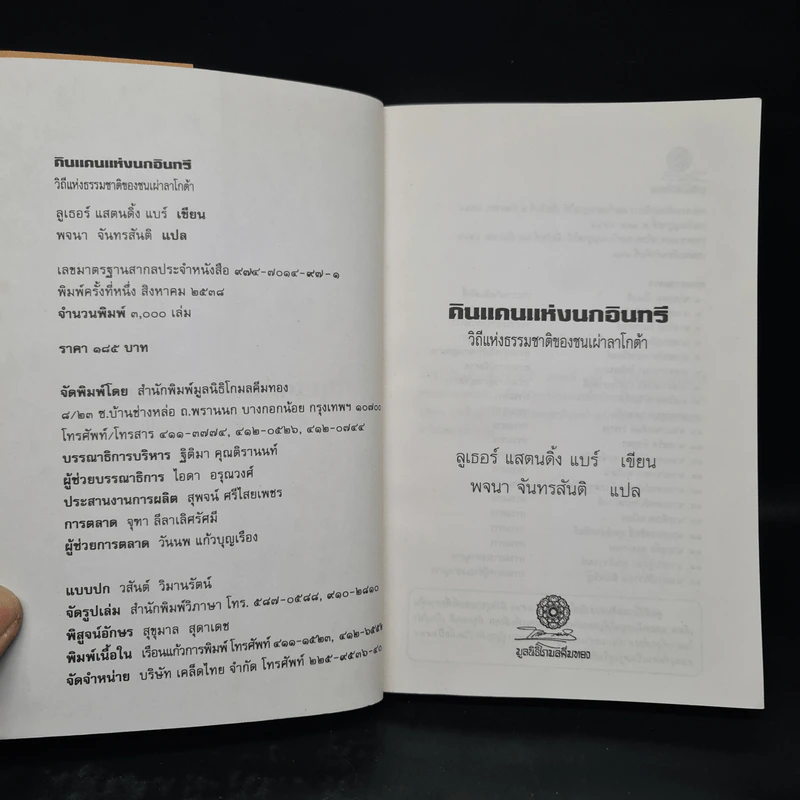 คืนแคนแห่งนกอินทรี
วิถีแห่งธรรมชาติของชนเผ่าลาโกต้า
ลูเธอร์ แสตนดิ้ง แบร์ เขียน
พจนา จันทรสันติ แปล
เลขมาตรฐานสากลประจำหนังสือ ๙๗๔-๗๐๑๔-๙๗-๑
พิมพ์ครั้งที่หนึ่ง สิงหาคม ๒๕๓๘
จำนวนพิมพ์ ๓,๐๐๐ เล่ม
ราคา ๑๘๕ บาท
จัดพิมพ์โดย สำนักพิมพ์มูลนิธิโกมลคีมทอง
๘/๒๓ ซ.บ้านช่างหล่อ ถ.พรานนก บางกอกน้อย กรุงเทพฯ ๑๐๗๐๐
โทรศัพท์/โทรสาร ๔๑๑-๓๗๗๔, ๔๑๒-๐๕๒๖, ๔๑๒-๐๗๔๔
บรรณาธิการบริหาร ฐิติมา คุณติรานนท์
ผู้ช่วยบรรณาธิการ ไอดา อรุณวงศ์
ประสานงานการผลิต สุพจน์ ศรีไสยเพชร
การตลาด จุฑา ลีลาเลิศรัศมี
ผู้ช่วยการตลาด วันนพ แก้วบุญเรือง
แบบปก วสันต์ วิมานรัตน์
จัดรูปเล่ม สำนักพิมพ์วิภาษา โทร. ๕๘๗-๐๕๘๘, ๙๑๐-๒๘๑๐
พิสูจน์อักษร สุขุมาล สุดาเดช
พิมพ์เนื้อใน เรือนแก้วการพิมพ์ โทรศัพท์ ๔๑๑-๑๕๒๓, ๔๑๒-๖๕๕๒
จัดจำหน่าย บริษัท เคล็ดไทย จำกัด โทรศัพท์ ๒๒๕-๙๕๓๖-๔๐
คืนแคนแห่งนกอินทรี
วิถีแห่งธรรมชาติของชนเผ่าลาโกต้า
ลูเธอร์ แสตนดิ้ง แบร์ เขียน
พจนา จันทรสันติ แปล
มูลนิธิโกมลคีมทอง